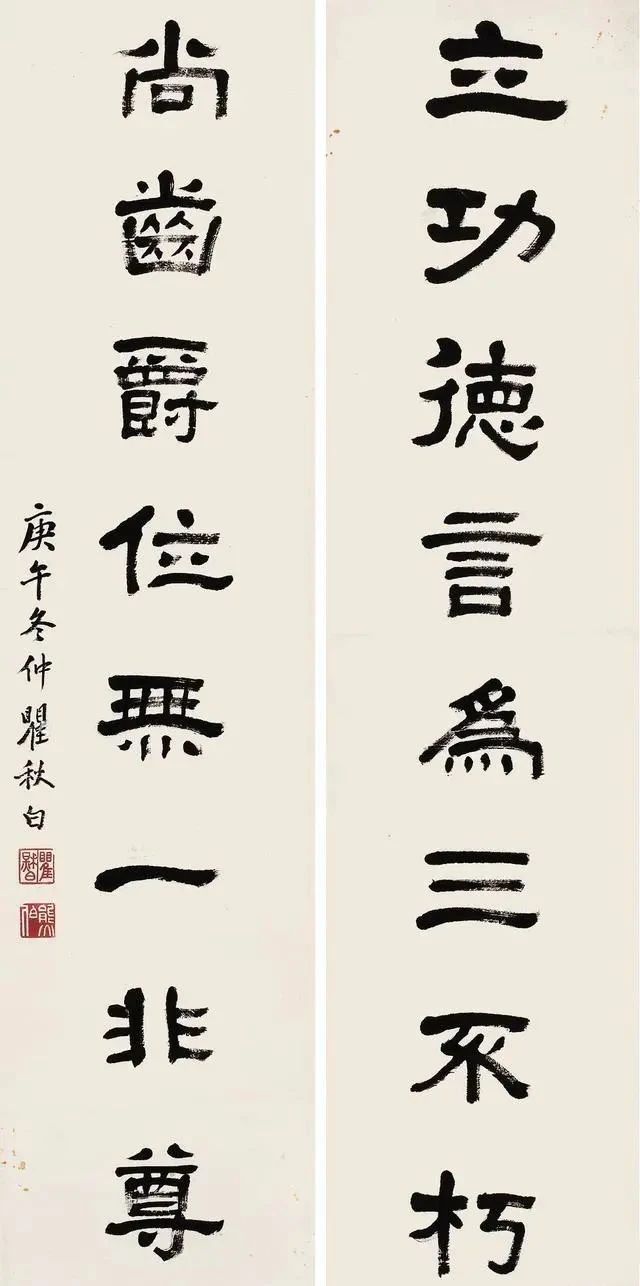 立功德言為三不朽
尚齒爵位無一非尊
庚午冬仲瞿秋白